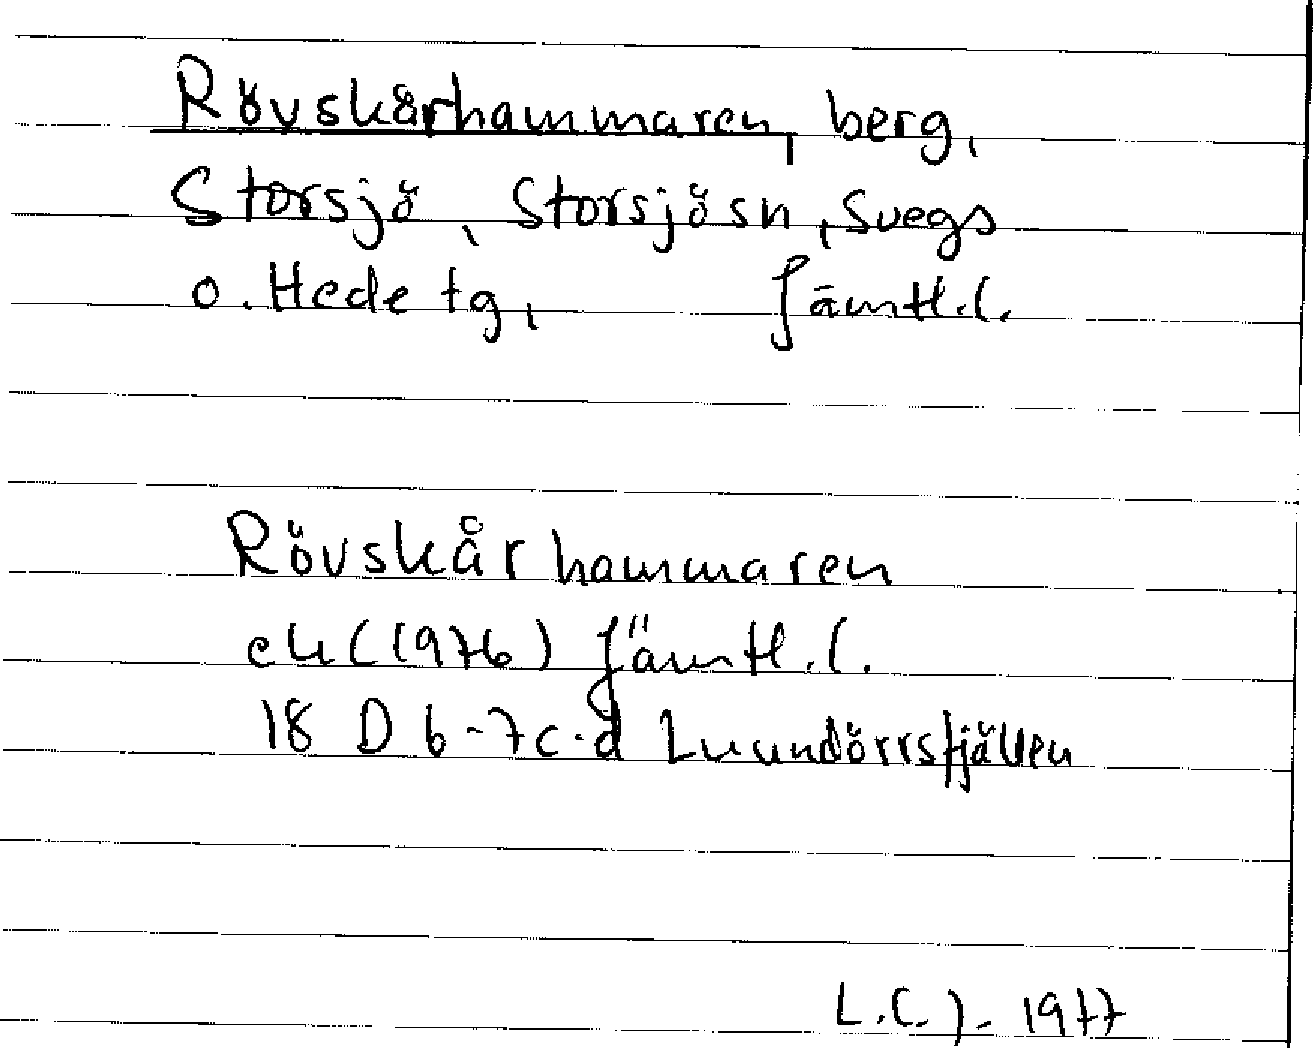 Rövskårhammaren, berg,
Storsjö, Storsjösn, Svegs
o. Hede tg, Jämtl.l.
Rövskårhammaren
ek (1976) Jämtl.l.
18 D 6-7c-d Lunndörrsfjällen
L.C.J. 1977